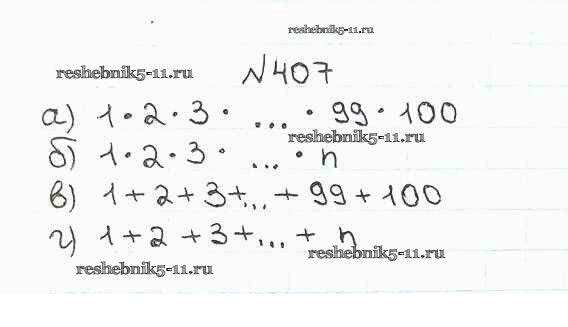 reshebnik5-11.ru
reshebnik5-11.ru
№407
а) 1 · 2 · 3 · ... · 99 · 100
reshebnik5-11.ru
б) 1 · 2 · 3 · ... · n
в) 1 + 2 + 3 + ... + 99 + 100
г) 1 + 2 + 3 + ... + n
reshebnik5-11.ru
reshebnik5-11.ru